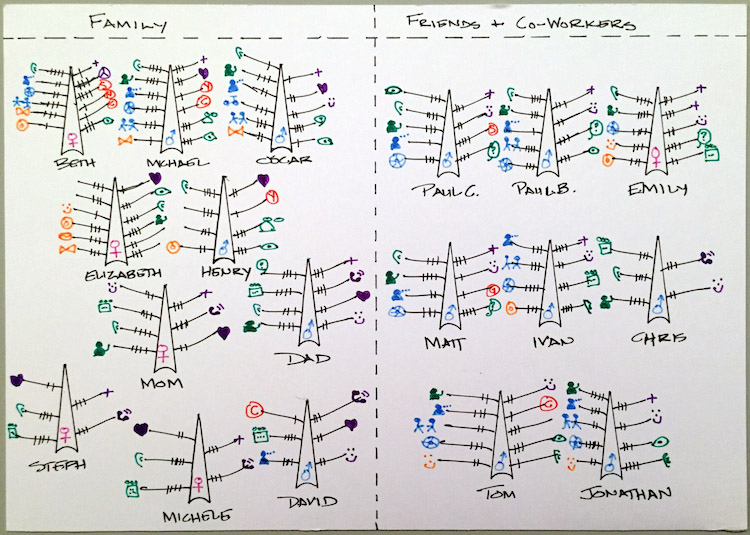 FAMILY
FRIENDS + CO-WORKERS
BETH
MICHAEL
OSCAR
PAUL C.
PAUL B.
EMILY
ELIZABETH
HENRY
MATT
IVAN
CHRIS
MOM
DAD
STEPH
MICHELE
DAVID
TOM
JONATHAN